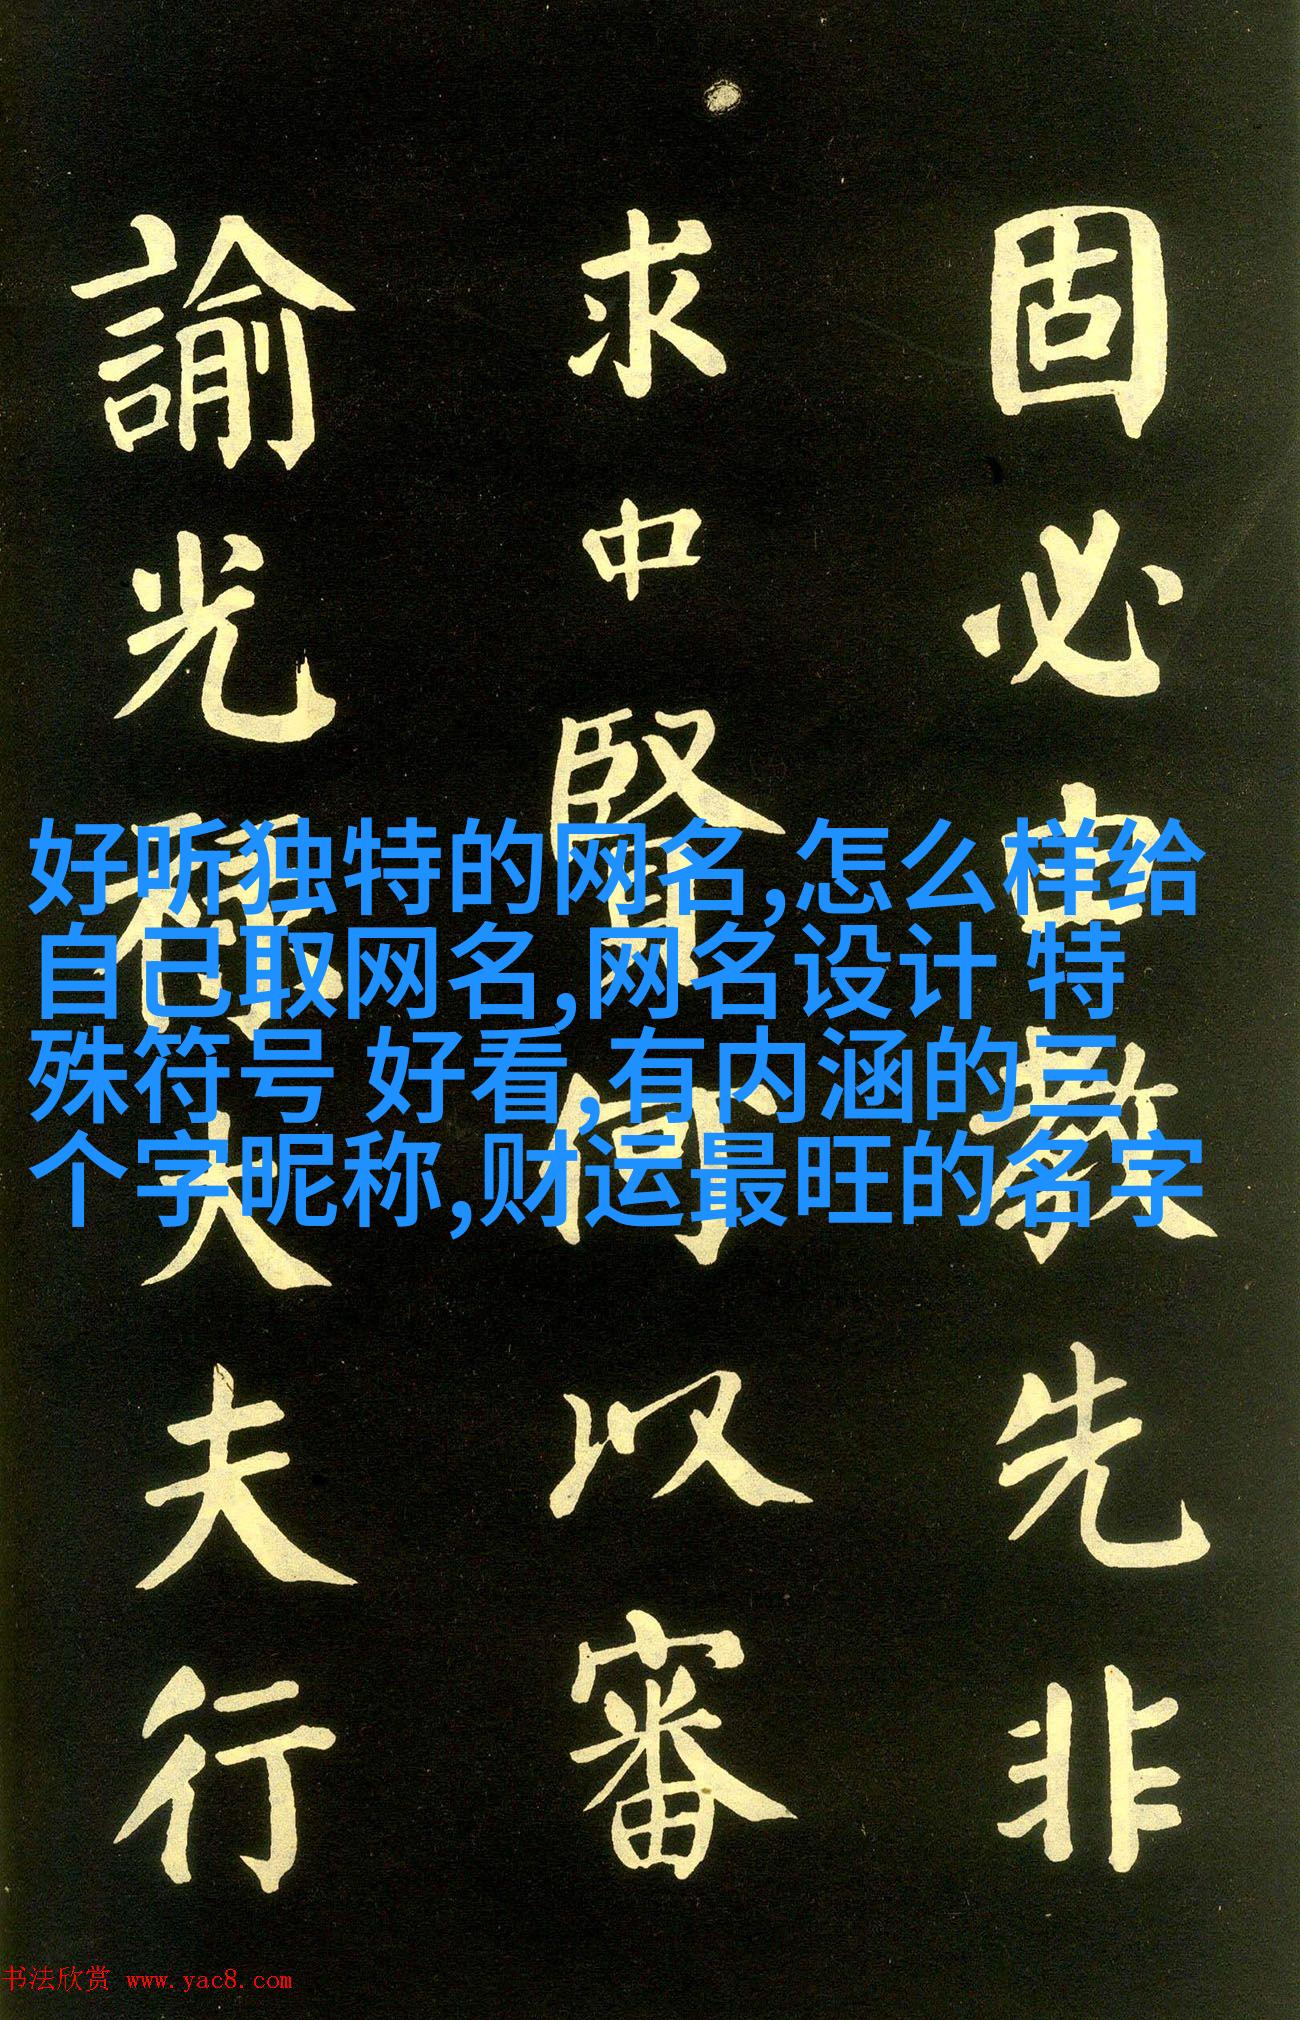 固必由教先非
求中賢何以審
諭光祿大夫行
好听独特的网名,怎么样给
自己取网名,网名设计 特
殊符号 好看,有内涵的三
个字昵称,财运最旺的名字
书法欣赏 www.yac8.com